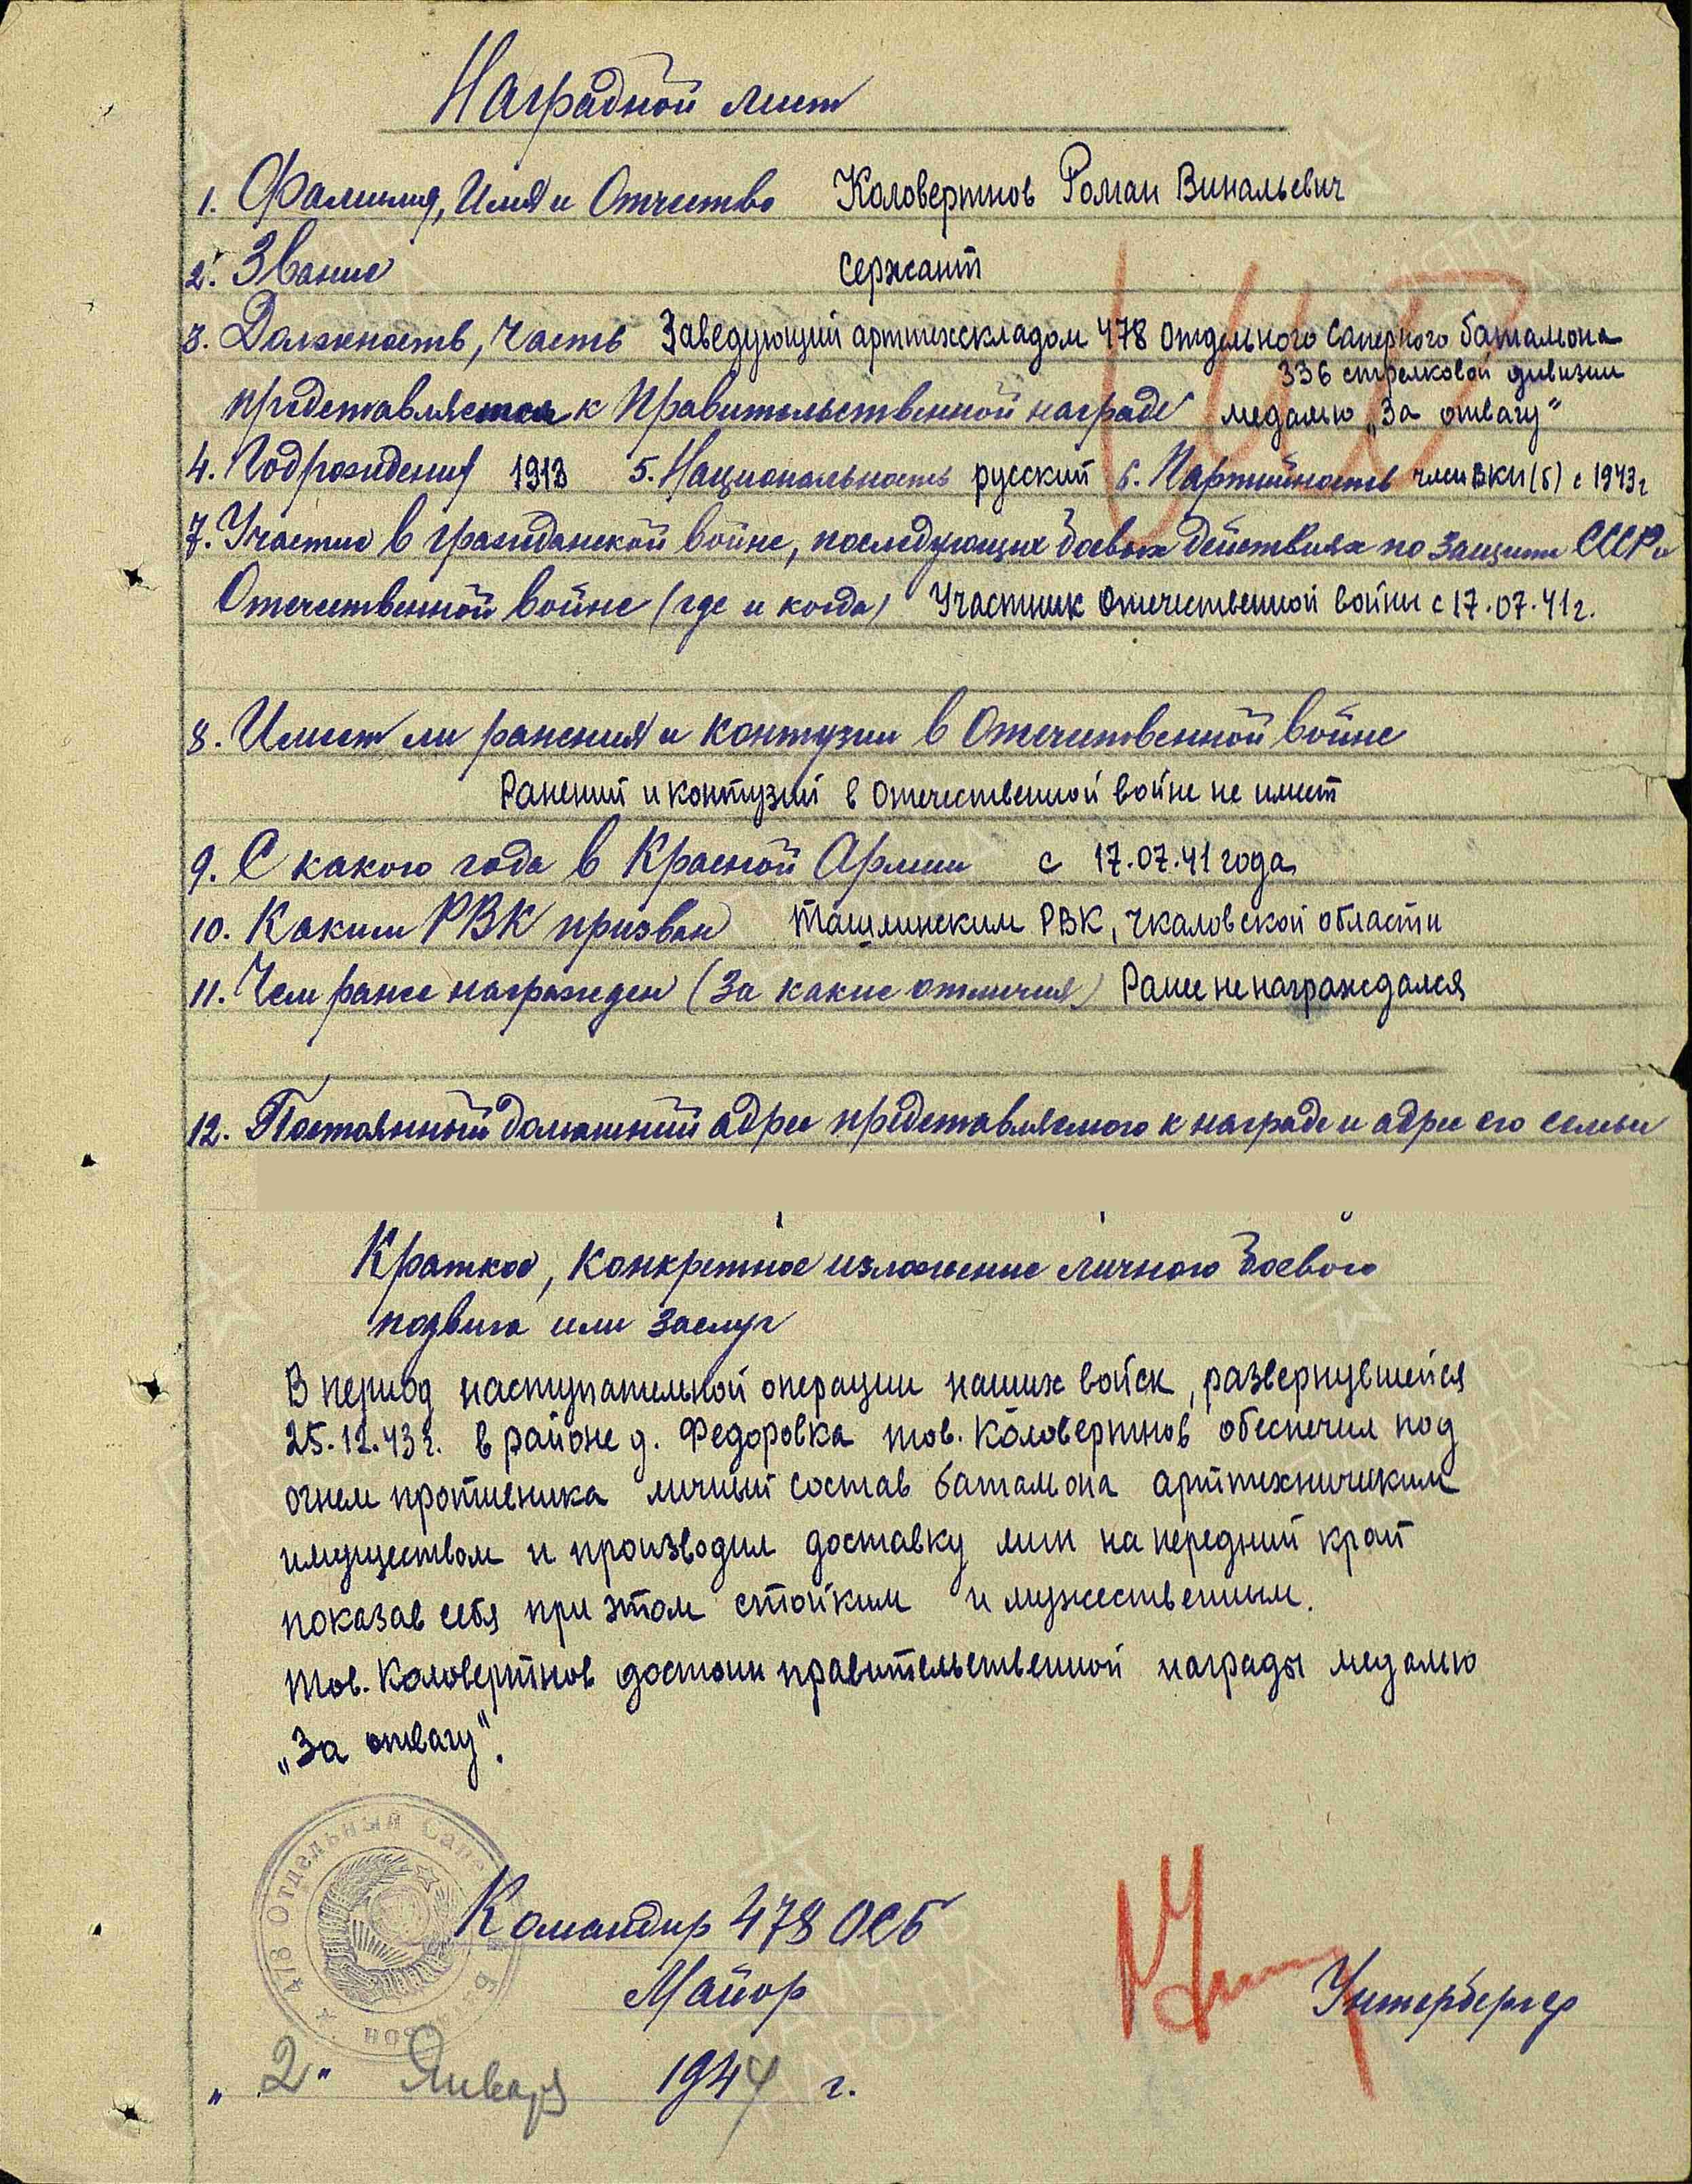 Наградной лист
1. Фамилия, Имя и Отчество Коловертнов Роман Винальевич
2. Звание сержант
3. Должность, часть Заведующий арттехскладом 478 отдельного саперного батальона
336 стрелковой дивизии
представляется к Правительственной награде медалью „За отвагу"
4. Год рождения 1913 5. Национальность русский 6. Партийность член ВКП(б) с 1943 г
7. Участие в гражданской войне, последующих боевых действиях по защите СССР и
Отечественной войне (где и когда) Участник Отечественной войны с 17.07.41 г.
8. Имеет ли ранения и контузии в Отечественной войне
Ранений и контузий в Отечественной войне не имеет
9. С какого года в Красной Армии с 17.07.41 года
10. Каким РВК призван Ташлинским РВК, Чкаловской области
11. Чем ранее награжден (За какие отличия) Ранее не награждался
12. Постоянный домашний адрес представляемого к награде и адрес его семьи
Краткое, конкретное изложение личного боевого
подвига или заслуг
В период наступательной операции наших войск, развернувшейся
25.12.43 г. в районе д. Федоровка тов. Коловертнов обеспечил под
огнем противника личный состав батальона арттехническим
имуществом и производил доставку мин на передний край
показав себя при этом стойким и мужественным.
Тов. Коловертнов достоин правительственной награды медалью
„За отвагу".
478 Отдельный Сапе
Командир 478 ОСБ
Майор Унтербергер
„2" Января 1944 г.
ПАМЯТЬ НАРОДА